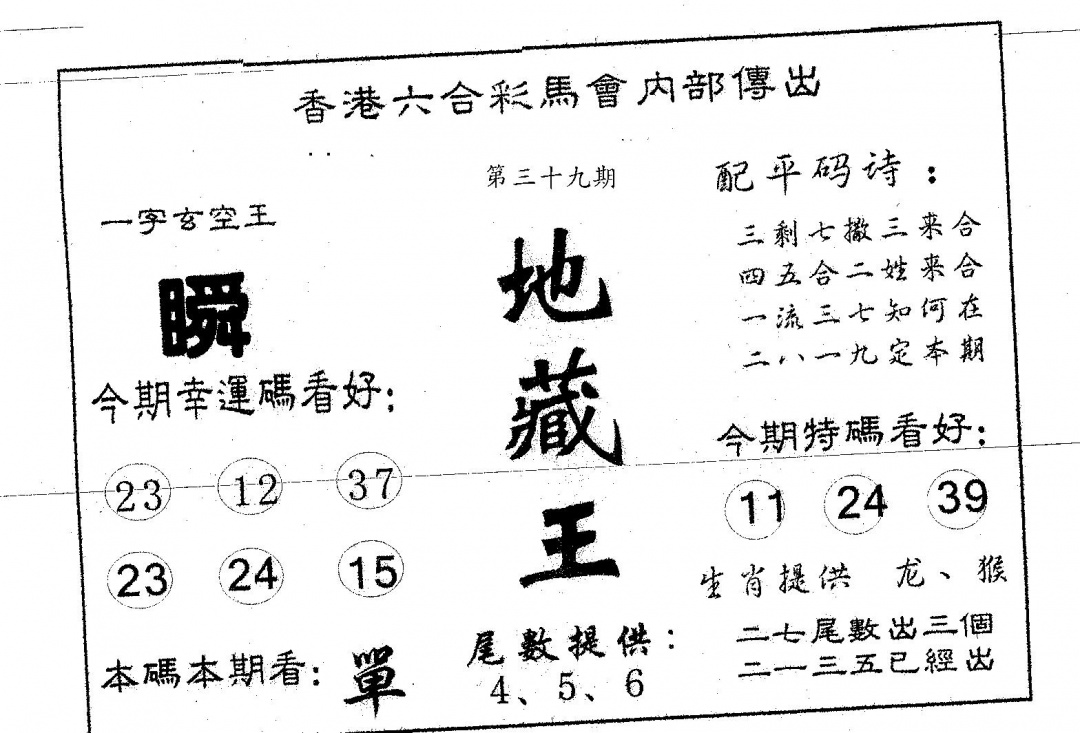 香港六合彩馬會内部傳出
第三十九期
一字玄空王
瞬
今期幸運碼看好：
23 12 37
23 24 15
本碼本期看：單
地藏王
尾數提供：
4、5、6
配平码诗：
三剩七撒三来合
四五合二姓来合
一流三七知何在
二八一九定本期
今期特碼看好：
11 24 39
生肖提供 龙、猴
二七尾數出三個
二一三五已經出